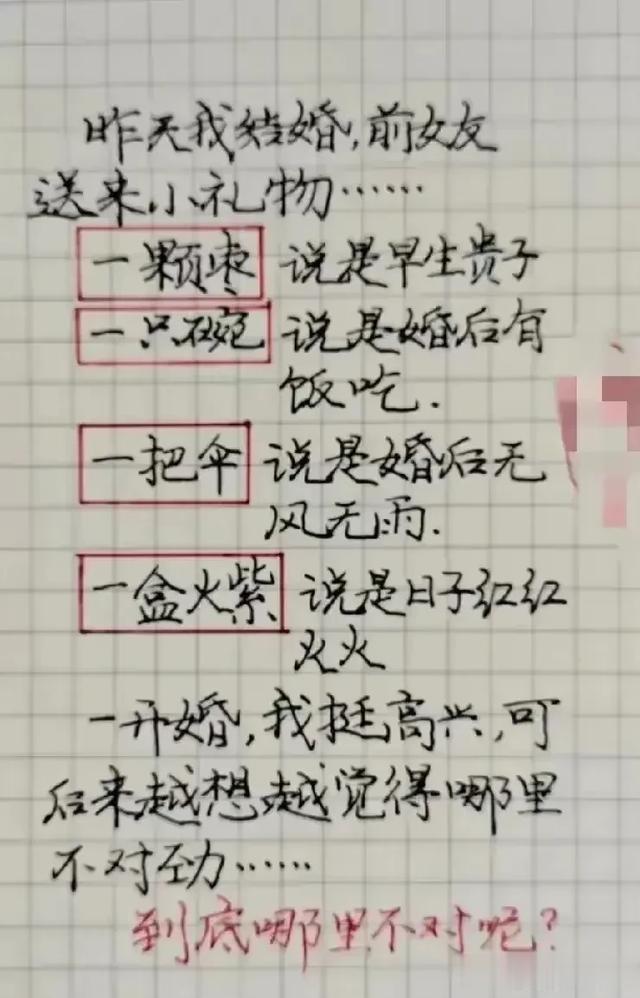 昨天我结婚,前女友
送来小礼物……
一颗枣 说是早生贵子
一只碗 说是婚后有
饭吃.
一把伞 说是婚后无
风无雨.
一盒火紫 说是日子红红
火火
一开婚,我挺高兴,可
后来越想越觉得哪里
不对劲……
到底哪里不对呢?